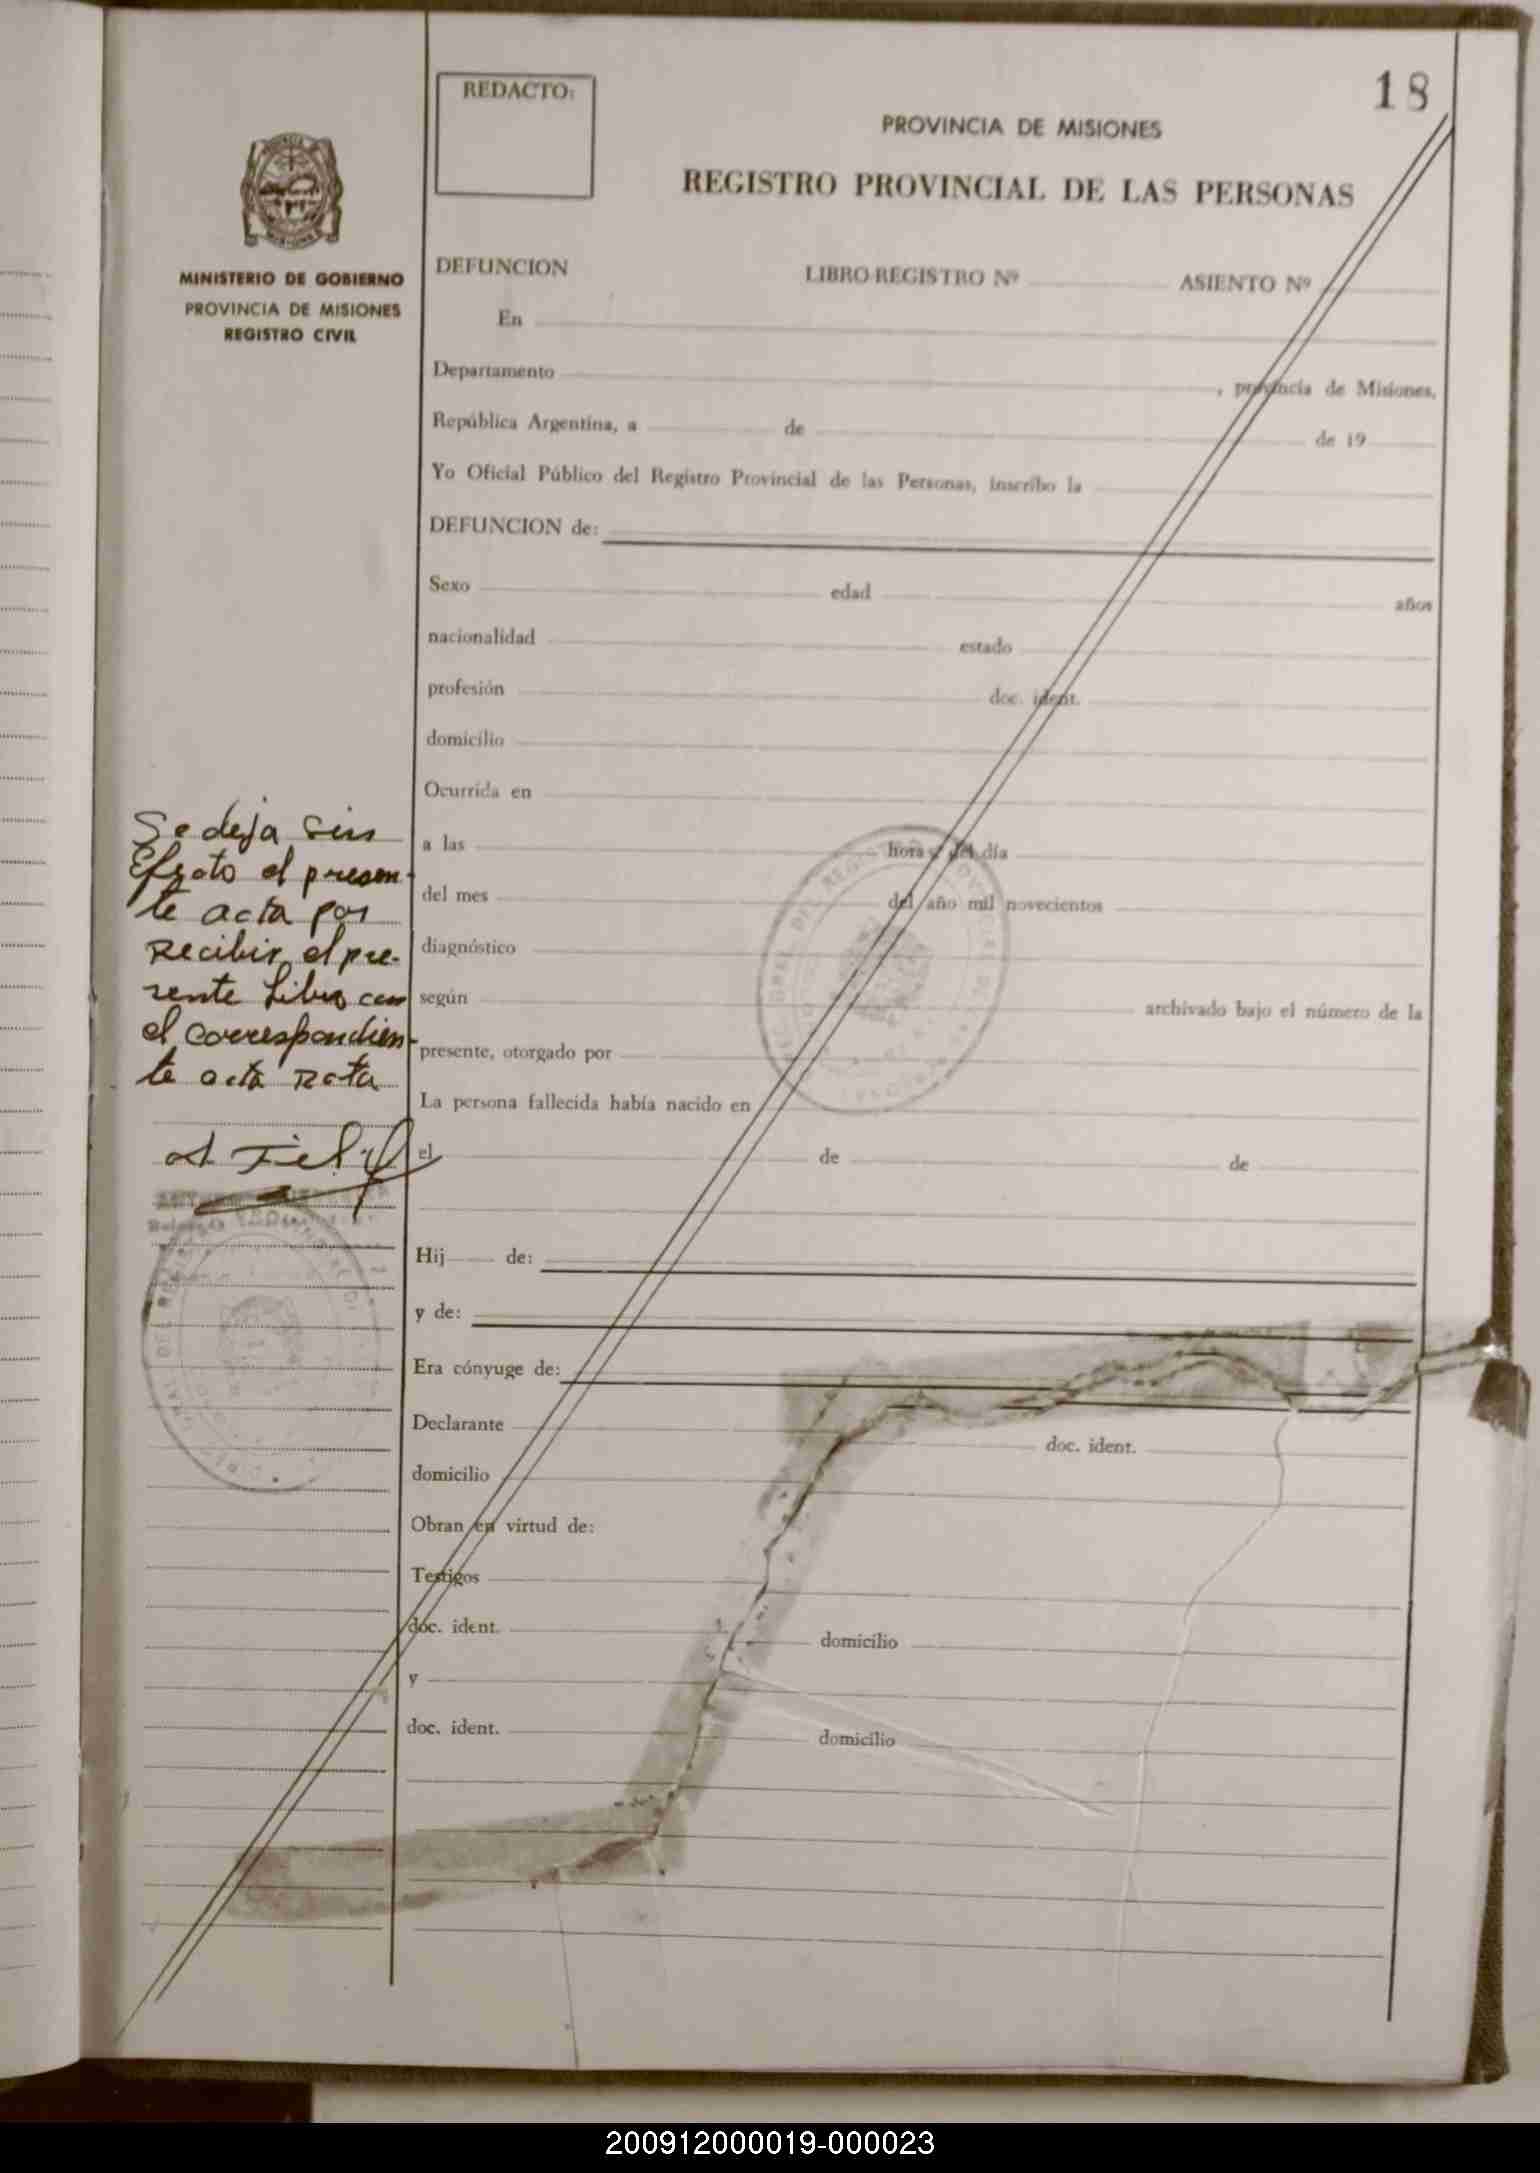 18
REDACTO:
PROVINCIA DE MISIONES
REGISTRO PROVINCIAL DE LAS PERSONAS
MINISTERIO DE GOBIERNO
PROVINCIA DE MISIONES
REGISTRO CIVIL
DEFUNCION LIBRO REGISTRO Nº ASIENTO Nº
En
Departamento , provincia de Misiones,
República Argentina, a de de 19
Yo Oficial Público del Registro Provincial de las Personas, inscribo la
DEFUNCION de:
Sexo edad años
nacionalidad estado
profesión doc. ident.
domicilio
Ocurrida en
a las hora s del día
del mes del año mil novecientos
diagnóstico
según archivado bajo el número de la
presente, otorgado por
La persona fallecida había nacido en
el de de
Hij de:
y de:
Era cónyuge de:
Declarante doc. ident.
domicilio
Obran en virtud de:
Testigos
doc. ident. domicilio
y
doc. ident. domicilio
Se deja sin
Efecto el presen-
te acta por
recibir el pre-
sente Libro con
el correspondien-
te acta rota
200912000019-000023